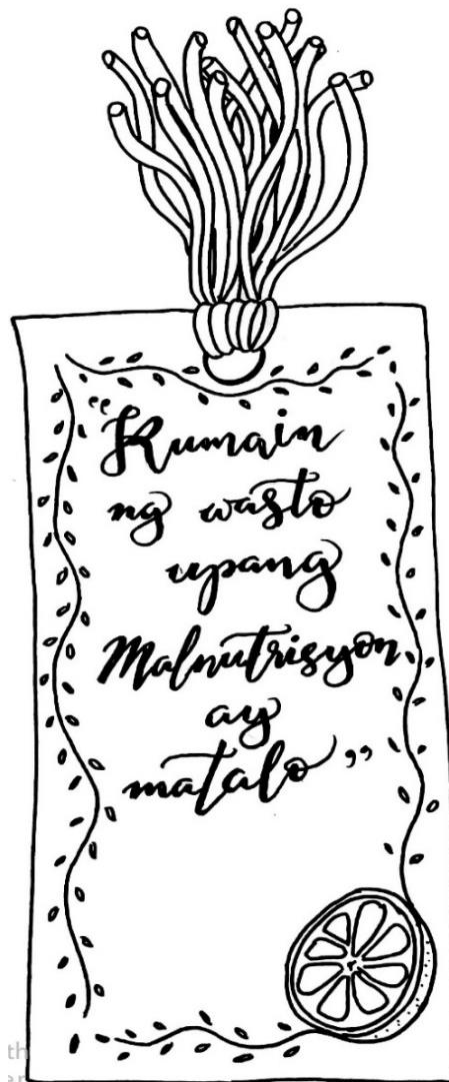 “Kumain
ng wasto
upang
Malnutrisyon
ay
matalo”
th